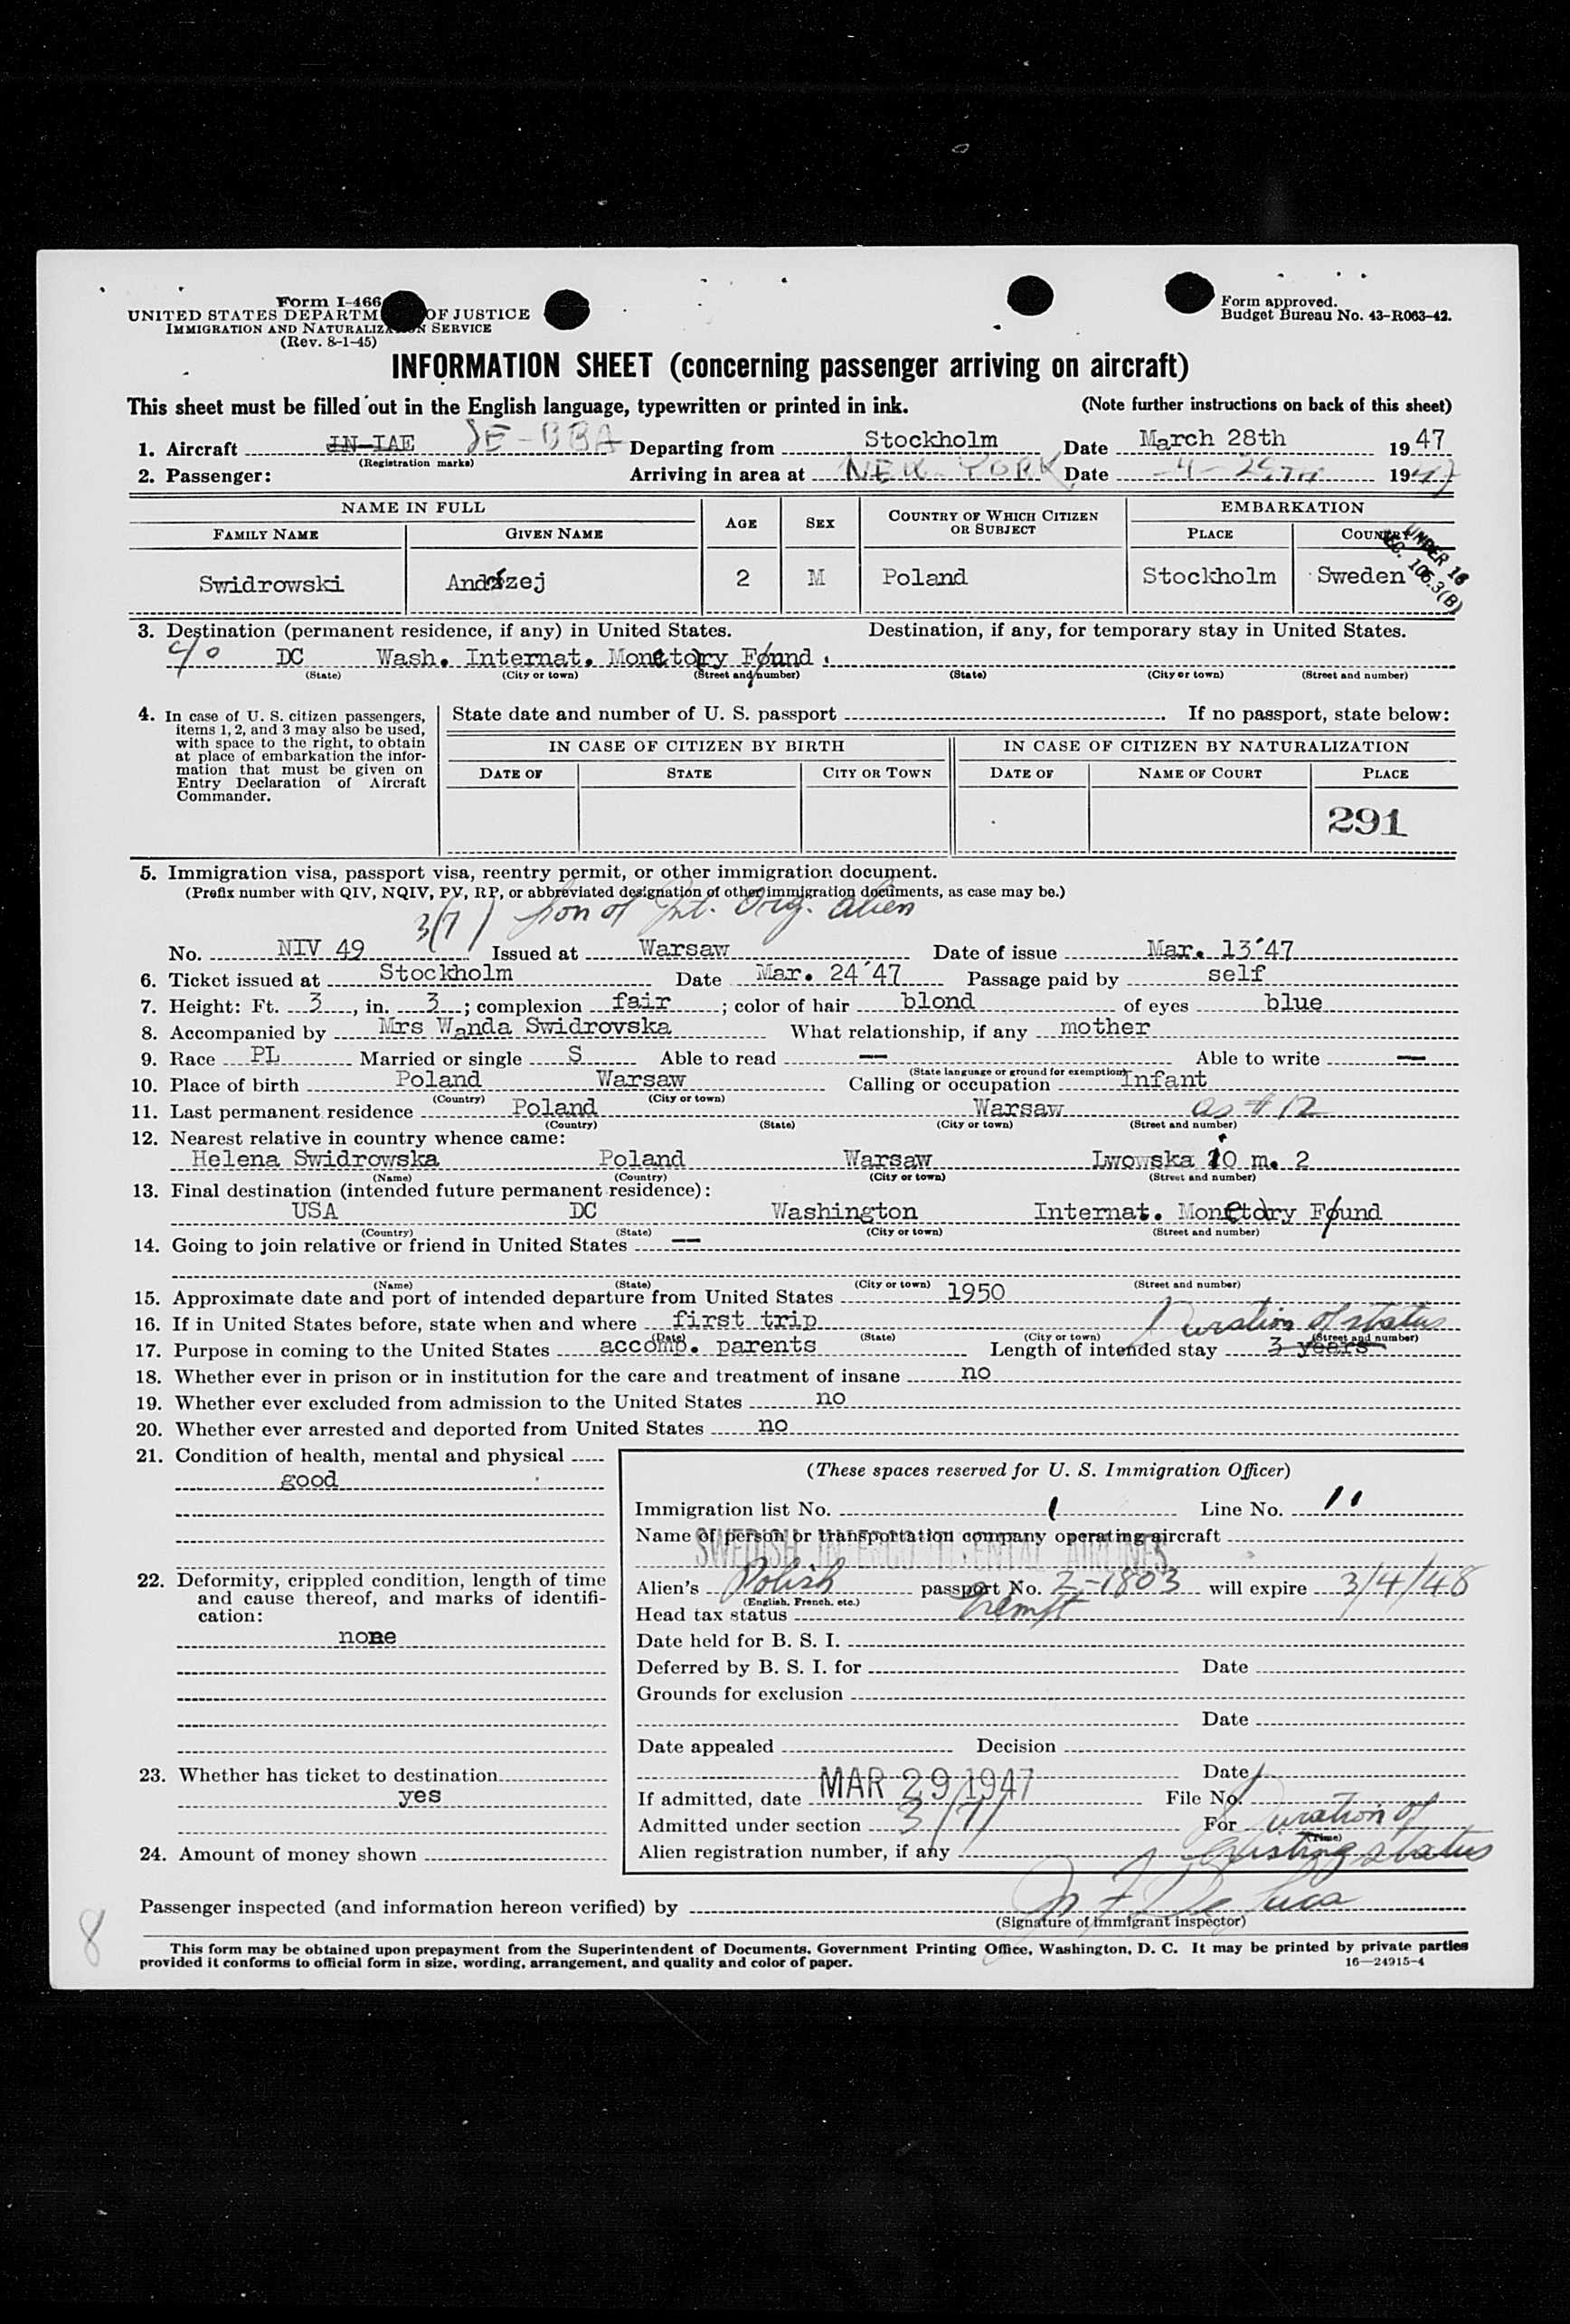 Form I-466
UNITED STATES DEPARTM OF JUSTICE
IMMIGRATION AND NATURALIZATION SERVICE
(Rev. 8-1-45)
Form approved.
Budget Bureau No. 43-R063-42.
INFORMATION SHEET (concerning passenger arriving on aircraft)
This sheet must be filled out in the English language, typewritten or printed in ink. (Note further instructions on back of this sheet)
1. Aircraft JN-IAE SE-BBA Departing from Stockholm Date March 28th 1947
(Registration marks)
2. Passenger: Arriving in area at NEW YORK Date 1947
NAME IN FULL AGE SEX COUNTRY OF WHICH CITIZEN OR SUBJECT EMBARKATION
FAMILY NAME GIVEN NAME PLACE COUNTRY
UNDER 16
SEC. 106.3(B)
Swidrowski Andrzej 2 M Poland Stockholm Sweden
3. Destination (permanent residence, if any) in United States. Destination, if any, for temporary stay in United States.
c/o DC Wash. Internat. Monetary Found.
(State) (City or town) (Street and number) (State) (City or town) (Street and number)
4. In case of U. S. citizen passengers, items 1, 2, and 3 may also be used, with space to the right, to obtain at place of embarkation the information that must be given on Entry Declaration of Aircraft Commander.
State date and number of U. S. passport . If no passport, state below:
IN CASE OF CITIZEN BY BIRTH IN CASE OF CITIZEN BY NATURALIZATION
DATE OF STATE CITY OR TOWN DATE OF NAME OF COURT PLACE
291
5. Immigration visa, passport visa, reentry permit, or other immigration document.
(Prefix number with QIV, NQIV, PV, RP, or abbreviated designation of other immigration documents, as case may be.)
3(7) Son of Int. Org. alien
No. NIV 49 Issued at Warsaw Date of issue Mar. 13'47
6. Ticket issued at Stockholm Date Mar. 24'47 Passage paid by self
7. Height: Ft. 3, in. 3; complexion fair; color of hair blond of eyes blue
8. Accompanied by Mrs Wanda Swidrovska What relationship, if any mother
9. Race PL Married or single S Able to read — Able to write —
(State language or ground for exemption)
10. Place of birth Poland Warsaw Calling or occupation Infant
(Country) (City or town)
11. Last permanent residence Poland Warsaw as # 12
(Country) (State) (City or town) (Street and number)
12. Nearest relative in country whence came:
Helena Swidrowska Poland Warsaw Lwowska 10 m. 2
(Name) (Country) (City or town) (Street and number)
13. Final destination (intended future permanent residence):
USA DC Washington Internat. Monetary Found
(Country) (State) (City or town) (Street and number)
14. Going to join relative or friend in United States —
(Name) (State) (City or town) (Street and number)
15. Approximate date and port of intended departure from United States 1950
16. If in United States before, state when and where first trip Duration of status
(Date) (State) (City or town) (Street and number)
17. Purpose in coming to the United States accomp. parents Length of intended stay 3 years
18. Whether ever in prison or in institution for the care and treatment of insane no
19. Whether ever excluded from admission to the United States no
20. Whether ever arrested and deported from United States no
21. Condition of health, mental and physical
good
22. Deformity, crippled condition, length of time and cause thereof, and marks of identification:
none
23. Whether has ticket to destination
yes
24. Amount of money shown
(These spaces reserved for U. S. Immigration Officer)
Immigration list No. 1 Line No. 11
Name of person or transportation company operating aircraft
SWEDISH INTERCONTINENTAL AIRLINES
Alien's Polish passport No. 2-1803 will expire 3/4/48
(English, French, etc.)
Head tax status Exempt
Date held for B. S. I.
Deferred by B. S. I. for Date
Grounds for exclusion
Date
Date appealed Decision
Date
If admitted, date MAR 29 1947 File No.
Admitted under section 3/7/ For Duration of
(Time)
Alien registration number, if any existing status
Passenger inspected (and information hereon verified) by De Luca
(Signature of immigrant inspector)
8
This form may be obtained upon prepayment from the Superintendent of Documents, Government Printing Office, Washington, D. C. It may be printed by private parties
provided it conforms to official form in size, wording, arrangement, and quality and color of paper. 16—24915-4